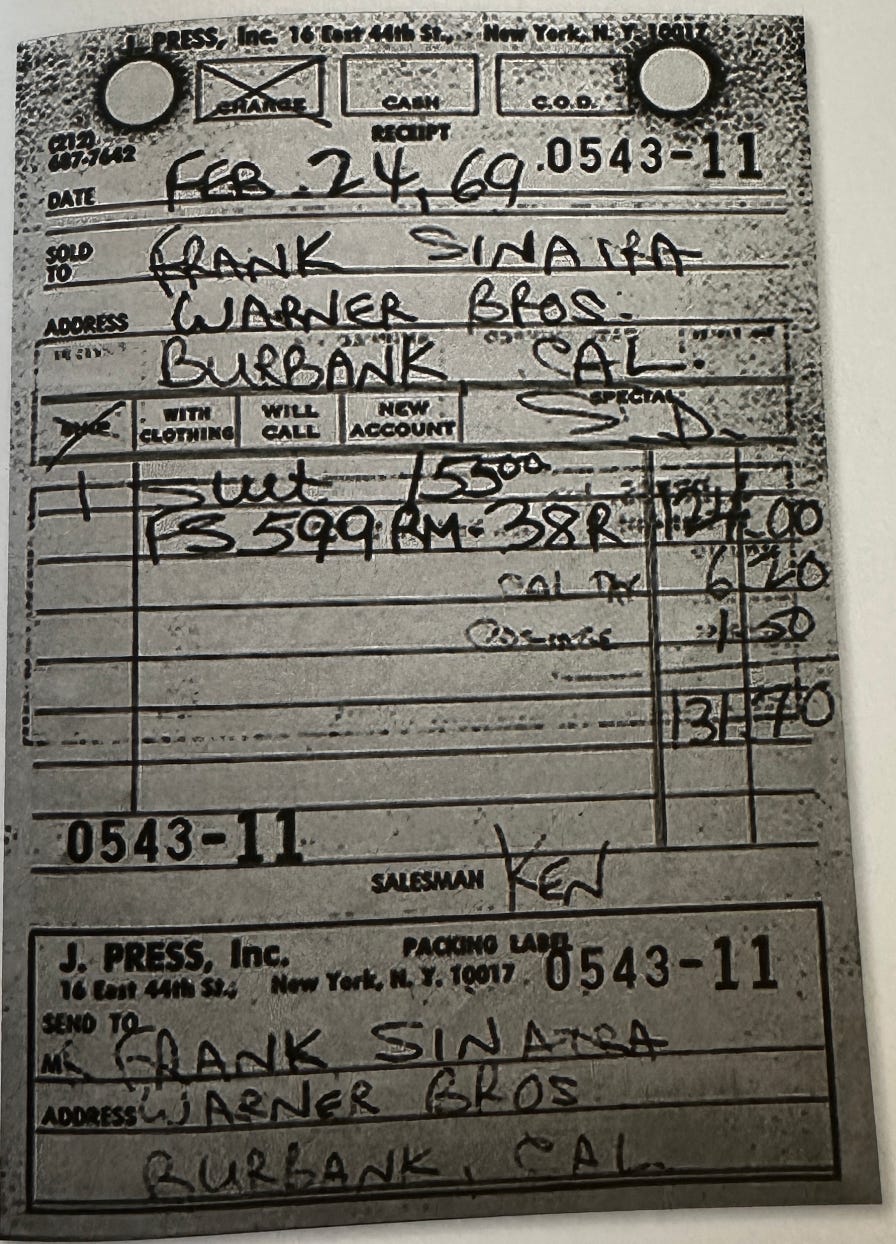 J. PRESS, Inc. 16 East 44th St., New York, N. Y. 10017
CHARGE CASH C.O.D.
RECEIPT
(212)
687-7642
0543-11
DATE FEB. 24, 69
SOLD TO FRANK SINATRA
ADDRESS WARNER BROS.
BURBANK, CAL.
WITH CLOTHING WILL CALL NEW ACCOUNT SPECIAL S.D.
1 Suit 155.00
FS 599 RM- 38R 124.00
CAL TAX 6 20
1 50
131 70
0543-11
SALESMAN KEN
J. PRESS, Inc. PACKING LABEL 0543-11
16 East 44th St., New York, N. Y. 10017
SEND TO
MR FRANK SINATRA
ADDRESS WARNER BROS
BURBANK, CAL.